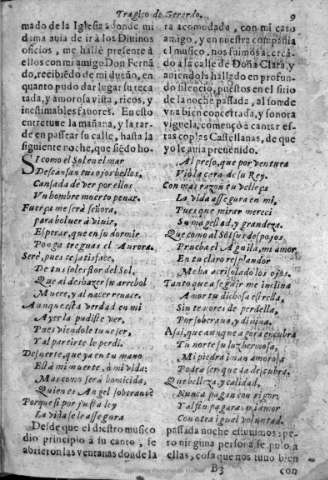 Tragico de Gerardo. 9
mado de la Iglesia adonde mi
dama auia de ir à los Diuinos
oficios, me hallè presente à
ellos con mi amigo Don Fernã
do, recibiẽdo de mi dueño, en
quanto pudo dar lugar su reca
tada, y amorosa vista, ricos, y
inestimables fauores. En esto
entretuue la mañana, y la tar-
de en passear su calle, hasta la
siguiente noche, que siẽdo ho-
SI como el Sol en el mar
Descansan tus ojos bellos,
Cansada de ver por ellos
Vn hombre muerto penar.
Fuerça me serà señora,
para boluer à viuir,
Esperar, que en su dormir
Ponga treguas el Aurora.
Serè, pues te satisface,
De tu sol es flor del Sol,
Que al deshazer su arrebol
Muere, y al nacer renace.
Aunque esta verdad en mi
Ayer la pudiste ver,
Pues viendo le tuue ser,
Y al partirte le perdi.
De suerte, que ya en tu mano
Està mi muerte, ò mi vida:
Mas como serà homicida,
Quien es Angel soberano?
Porque si por justa ley
La vida le assegura
Desde que el diestro musico
dio principio à su canto, se
abrieron las ventanas donde la
ra acomodada, con mi caro
amigo, y en nuestra compañia
el musico, nos fuimos acercã-
do a la calle de Doña Clara, y
auiendola hallado en profun-
do silencio, puestos en el sitio
de la noche passada, al son de
vna bien concertada, y sonora
viguela, començò a cantar es-
tas coplas Castellanas, de que
yo le auia preuenido.
Al preso, que por ventura
Viò la cara de su Rey.
Con mas razon tu belleza
La vida assegura en mi,
Pues que mirar mereci
Su magestad, y grandeza.
Que como al Sol sus despojos
Prueba el Aguila, mi amor
En tu claro resplandor
Me ha acrisolado los ojos.
Tanto que a seguir me inclina
Amor tu dichosa estrella,
Sin temores de perdella,
Por soberana, y diuina.
Assi, que aunque agora encubra
Tu norte su luz hermosa,
Mi piedra iman amorosa
Podrà ser que la descubra.
Que belleza, y calidad,
Nunca pagan con rigor;
Y al fin pagarà mi amor
Con otra igual voluntad.
passada noche estuuimos; pe-
ro ninguna persona se puso a
ellas, cosa que nos tuuo bien
B3 con